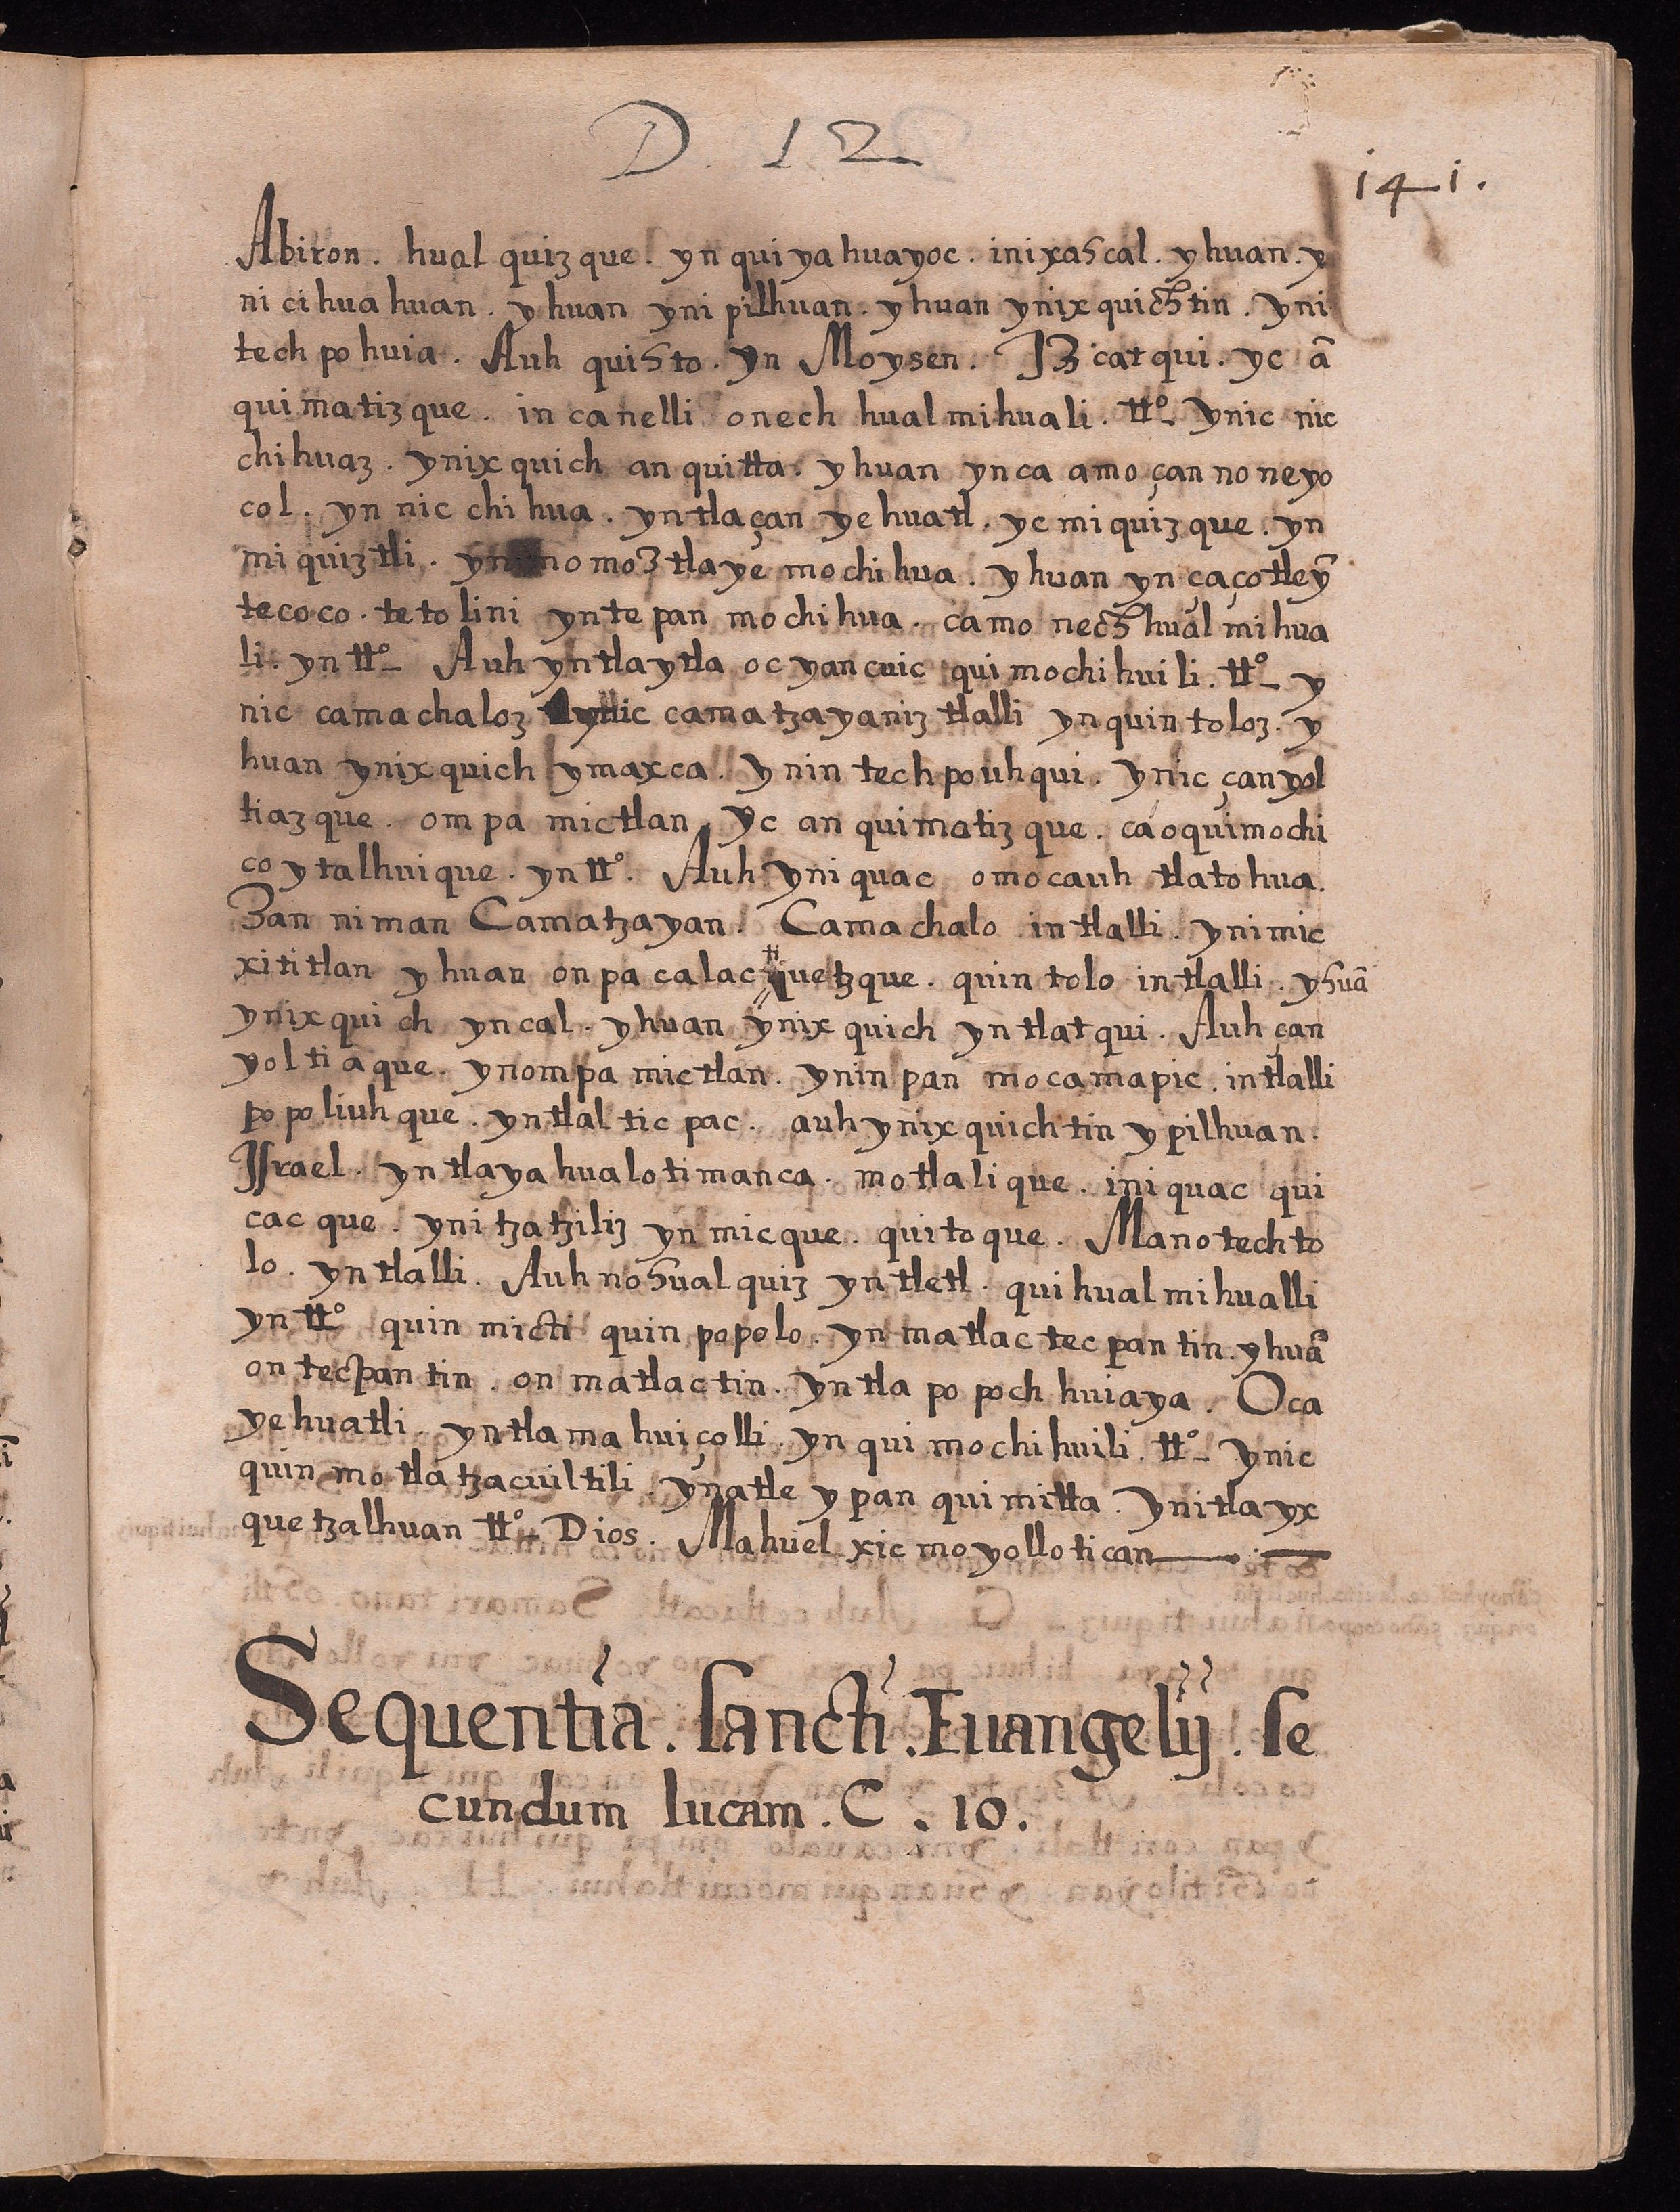 D. 12
141.
Abiron. hual quiz que. yn qui ya huayoc. inixascal. yhuan. y
ni cihua huan. yhuan yni pilhuan. yhuan ynix quichtin. yni
tech po huia. Auh quisto. yn Moysen. Iz catqui. yc ā
qui matiz que. in ca nelli onech hual mihuali. tt⁰_ ynic nic
chihuaz. ynix quich an quitta. yhuan yn ca amo çan no neyo
col. yn nic chihua. yn tla çan ye huatl. yc miquiz que. yn
miquiztli. yn momoztlaye mochihua. yhuan yn çaçotleȳ
tecoco. tetolini yn te pan mochihua. camo nech hual mihua
li. yn tt⁰_ Auh yntlaytla oc yancuic qui mochihuili. tt⁰_ y
nic camachaloz ynic camatzayaniz tlalli yn quin toloz. y
huan ynix quich ymaxca. ynin tech pouhqui. ynic çan yol
tiazque. ompa mictlan. yc an qui matiz que. ca oquimochi
co ytalhuique. yn tt⁰. Auh yni quac omocauh tlatohua.
Zan niman Camatzayan. Camachalo in tlalli. yn imic
xititlan yhuan onpa calac ti quetzque. quin tolo in tlalli. yhuā
ynix quich yncal. yhuan ynix quich yn tlatqui. Auh çan
yoltiaque. ynompa mictlan. ynin pan mocamapic. in tlalli
popoliuhque. yn tlal tic pac. auh ynix quichtin ypilhuan.
Israel. yn tlayahualotimanca. motlalique. ini quac qui
cac que. yni tzatziliz yn micque. quitoque. Mano techto
lo. yn tlalli. Auh no hual quiz yn tletl. qui hual mihualli
yn tt⁰ quin micti quin popolo. yn matlac tecpantin. yhuā
on tecpantin. on matlactin. yn tla popoch huiaya. Oca
yehuatli. yn tlamahuiçolli. yn qui mochihuili. tt⁰_ ynic
quin motlatzacuiltili. yn atle ypan quimitta. yni tlayx
quetzalhuan tt⁰_ Dios. Mahuel xic moyollotican
Sequentia. sancti. Euangelij. se
cundum lucam. C. 10.